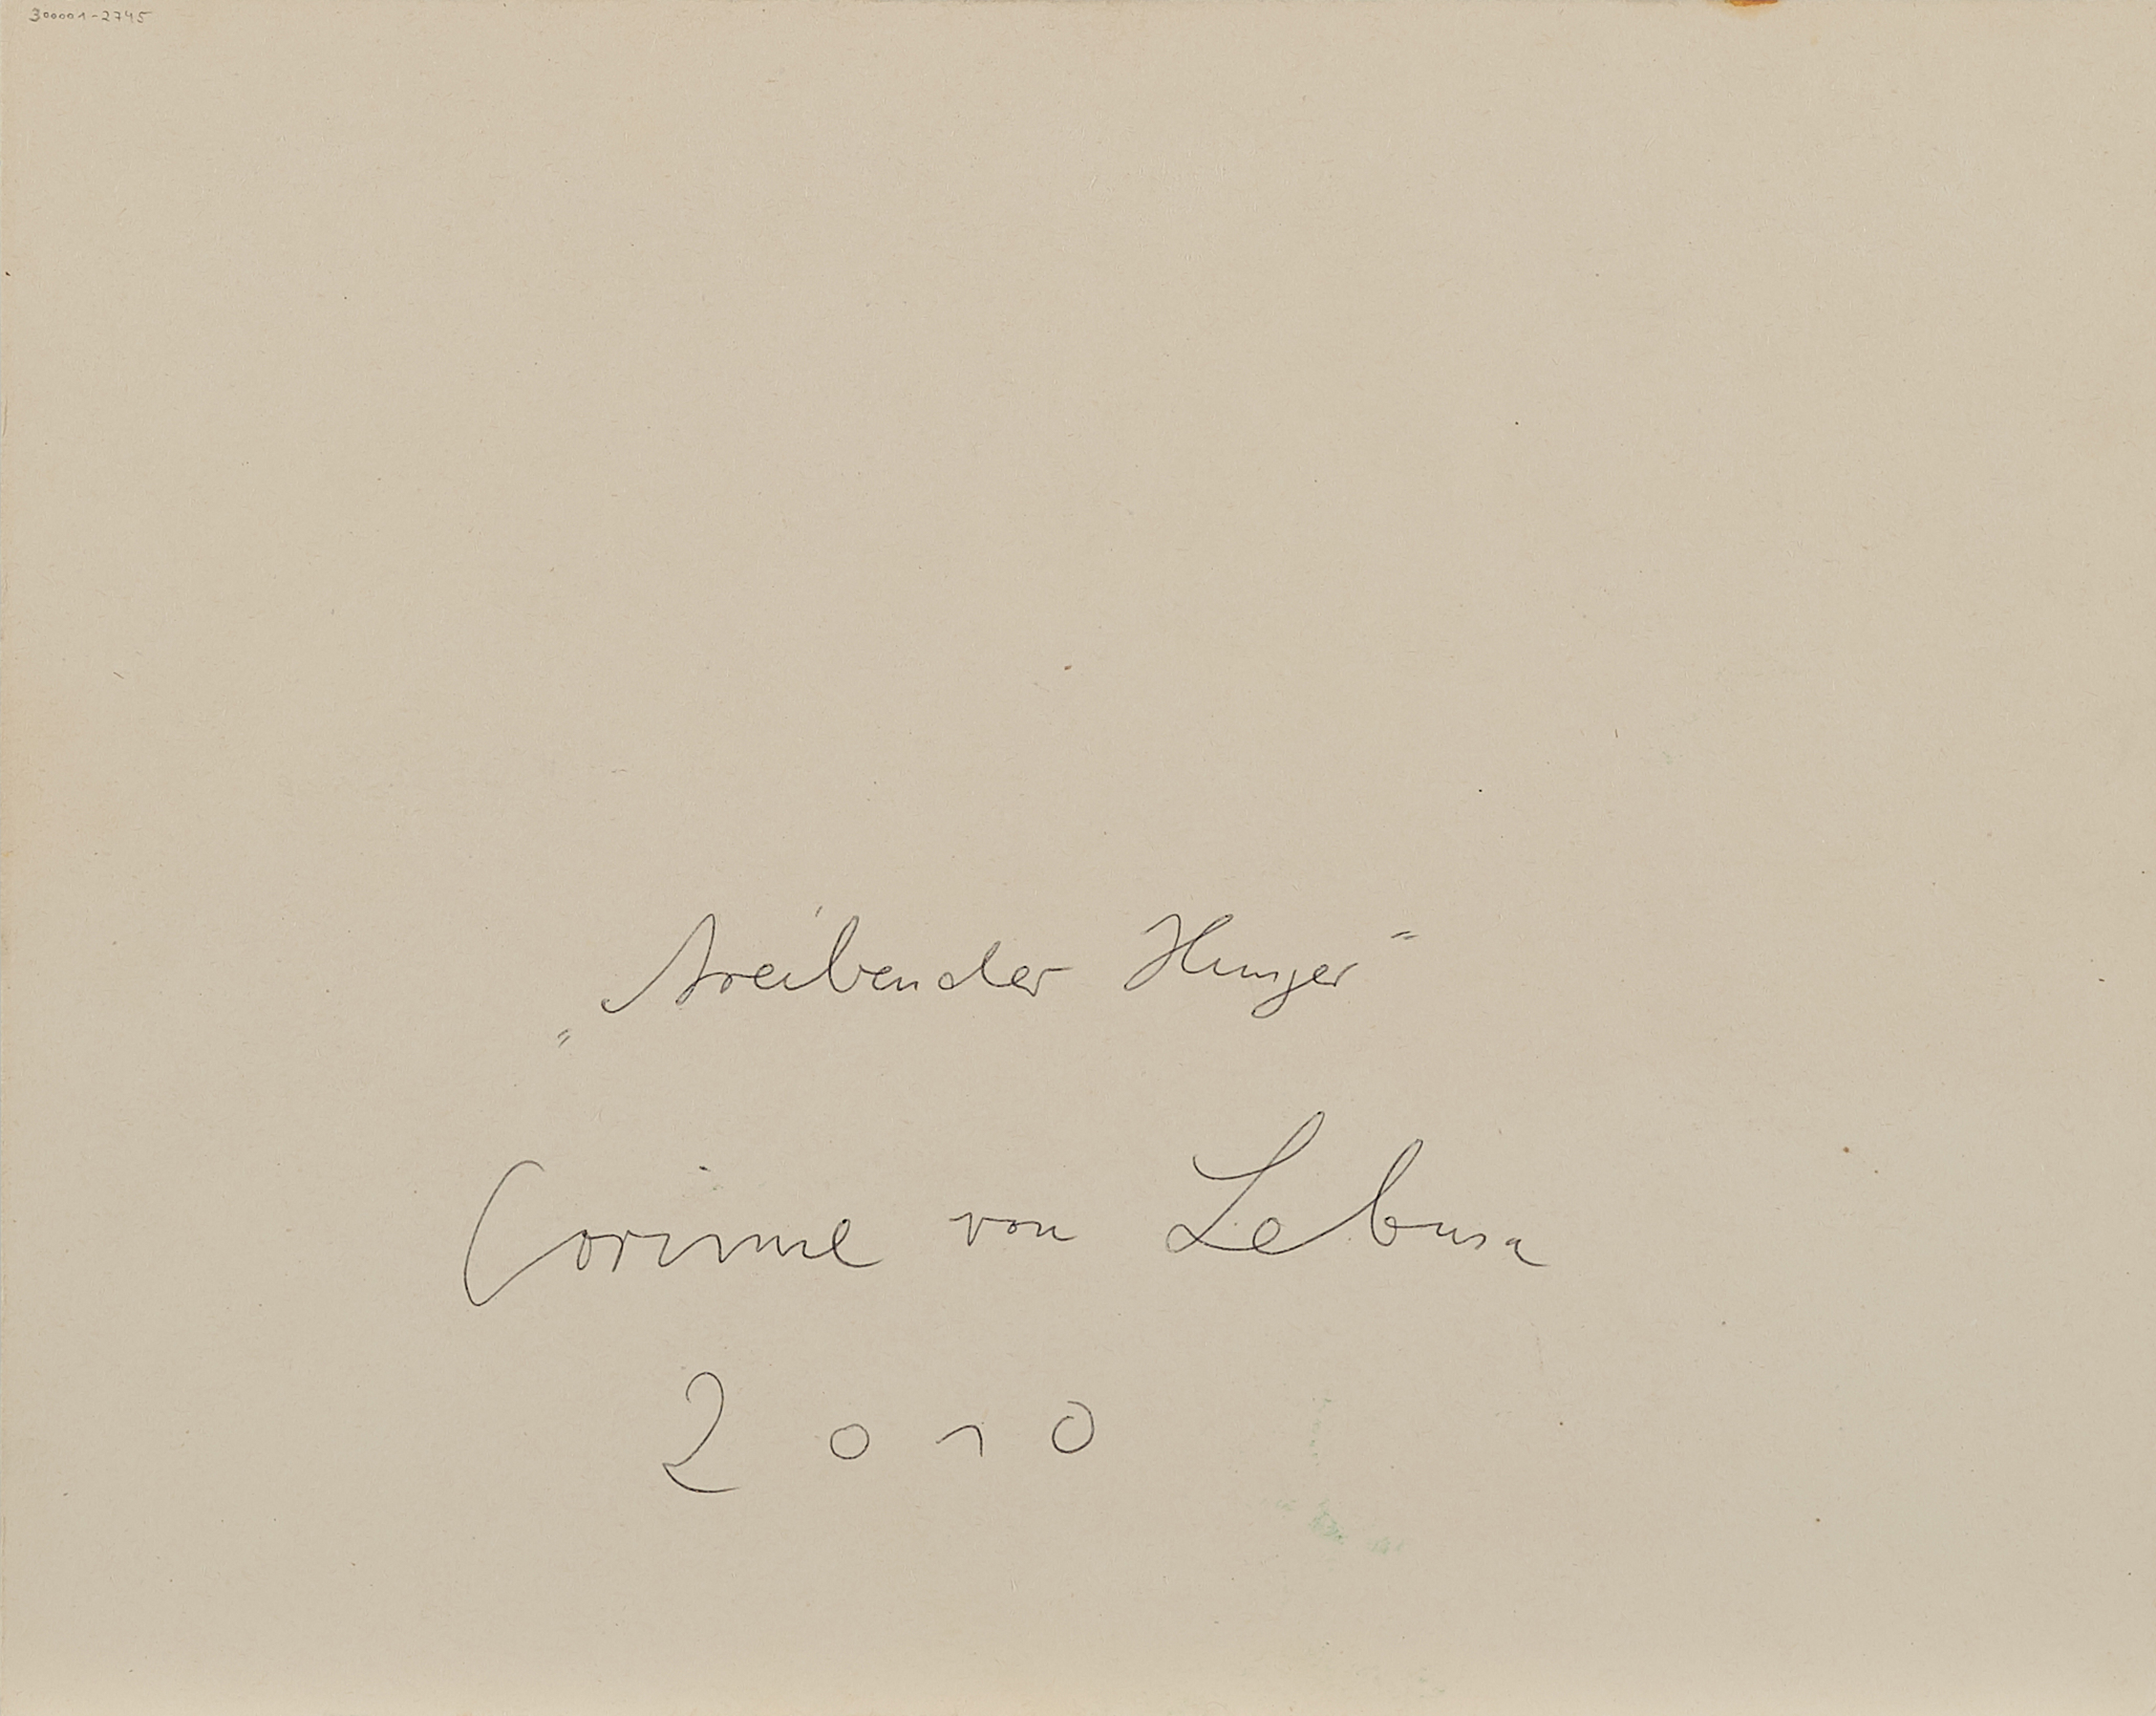 300001-2745
„treibender Hunger"
Corinne von Lebusa
2010